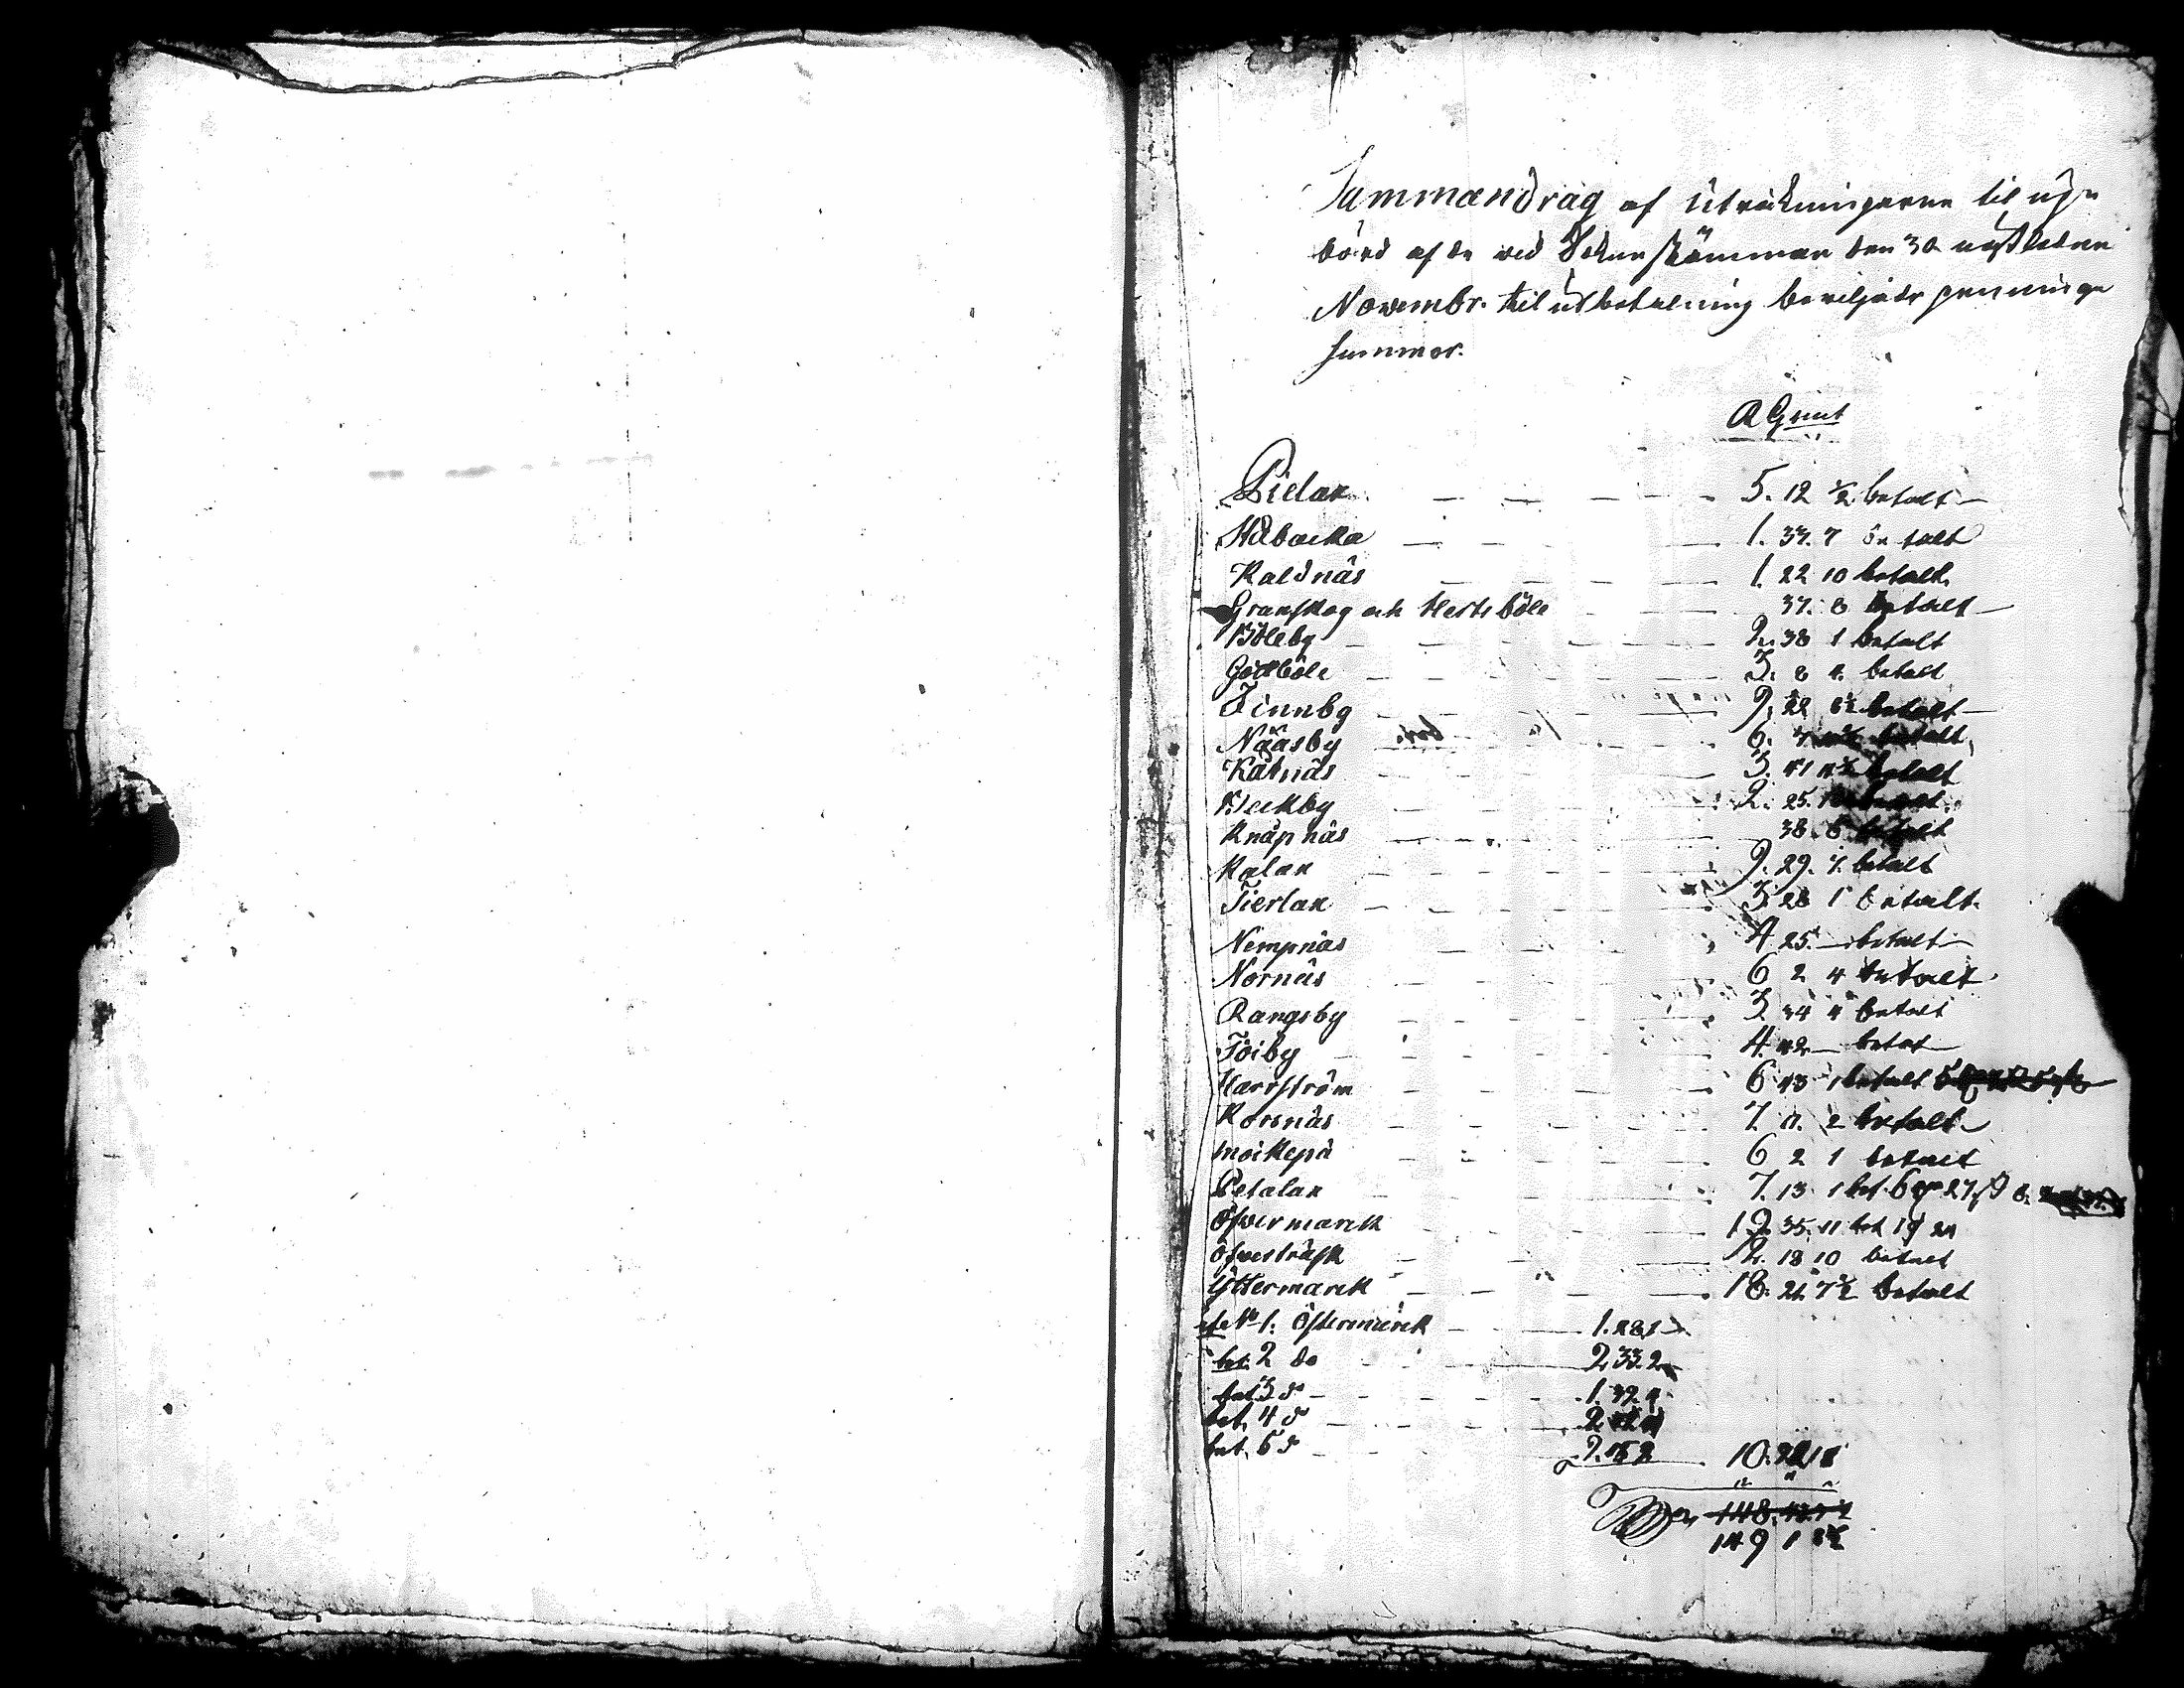 Sammandrag af Uträkningarne til upp-
börd af de vid Sokne stämman den 30 nästledne
Novembr. til utbetalning beviljade penninge
Summor.
R Gmt
Pielax 5. 12 ½ betalt
Ståbacka 1. 37. 7 betalt
Kaldnäs 1. 22 10 betalt
Granskog och Hertsböle 37. 8 betalt
Böleby 2. 38 1 betalt
Gottböle 3. 8 4 betalt
Finnby 9. 22 8½ betalt
Nääsby 6. 7 betalt
Kåtnäs 3. 41 4½ betalt
Bleckby 2. 25. betalt
Knåpnäs 38. 8 betalt
Kalax 9. 29. 7. betalt
Tierlax 3 28 1 betalt
Nempnäs 4 25. betalt
Nornäs 6 2 4 betalt
Rangsby 3 34 4 betalt
Töiby 4. 42 betat
Harrström 6 43 1 betalt
Korsnäs 7. 11. 2 betalt
moikepä 6 2 1 betalt
Petalax 7. 13 1 bet. 6 27
Öfvermarck 12. 35. 11 bet 19 24
Öfvesträsk 2. 18 10 betalt
Yttermarck 18. 21. 7½ betalt
No 1. Östermarck 1. 28 1
bet. 2 do 2 33. 2
bet 3 d 1. 32 4
bet. 4 d 2
bet. 5 d 2. 15 2 10.
148.
149 1 8½